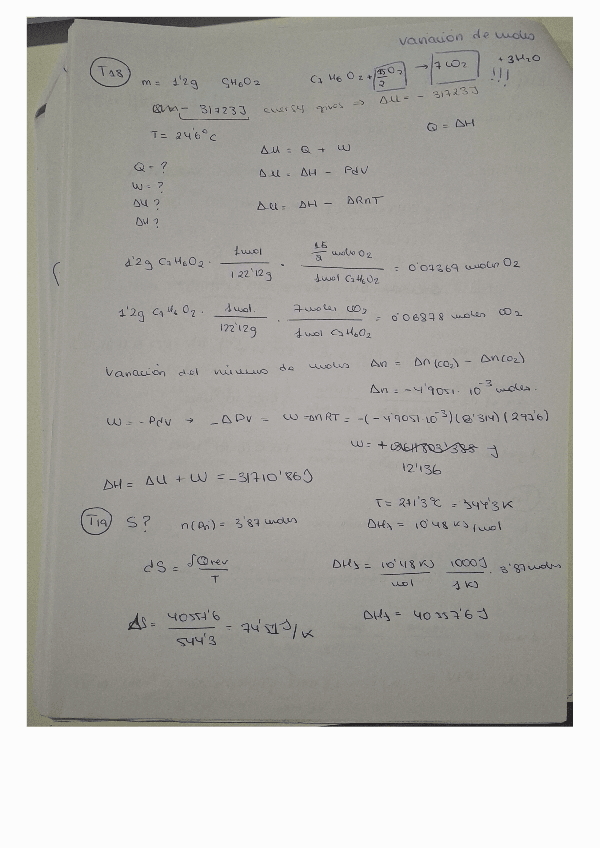 Variación de moles
T18 m = 1'2g C7H6O2 C7H6O2 + 15/2 O2 → 7CO2 + 3H2O !!!
- 31723J energy gives ⇒ ΔU = - 31723J
T = 24'6°C Q = ΔH
ΔU = Q + W
Q = ?
ΔU = ΔH - PdV
W = ?
ΔU?
ΔU = ΔH - ΔRnT
ΔU?
1'2g C7H6O2 · 1mol / 122'12g · 15/2 moles O2 / 1mol C7H6O2 = 0'07369 moles O2
1'2g C7H6O2 · 1mol / 122'12g · 7moles CO2 / 1mol C7H6O2 = 0'06878 moles CO2
Variación del número de moles Δn = Δn(CO2) - Δn(O2)
Δn = -4'9051 · 10^-3 moles.
W = -PdV → -ΔPV = W = -ΔnRT = -(-4'9051·10^-3)(8'314)(297'6)
W = + J
12'136
ΔH = ΔU + W = -31710'86J
T = 271'3°C = 544'3K
T19 S? n(An) = 3'87 moles ΔHs = 10'48 KJ/mol
dS = δQrev / T ΔHs = 10'48 KJ / mol 1000J / 1KJ · 3'87moles
ΔS = 40557'6 / 544'3 = 74'51 J/K ΔHs = 40557'6J